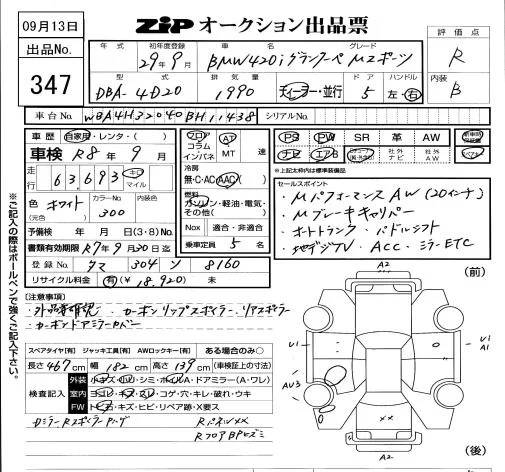 09月13日
ZIP オークション出品票
評価点
R
内装
B
出品No.
347
年式 初年度登録 車名 グレード
29年9月 BMW420iグランクーペ Mスポーツ
型式 排気量 ドア ハンドル
DBA-4D20 1990 ディーラー・並行 5 左・右
車台No. WBA4H32040BH11438 シリアルNo.
車歴 自家用・レンタ・( )
車検 R8年9月
走行 63,693 キロ マイル
色 ホワイト (元色) カラーNo. 300 内装色
予備検 年 月 日 (3・8) No.
書類有効期限 R7年9月20日迄
登録No. タマ 304 ソ 8160
リサイクル料金 有(¥18,920) 未
フロア コラム インパネ
AT MT 速
冷房
無・C・AC・AAC
燃料
ガソリン・軽油・電気・その他( )
Nox 適合・非適合
乗車定員 5名
PS PW SR 革 AW
ナビ エアB
社外ナビ 社外AW
※上記太枠内は標準装備品
セールスポイント
・MパフォーマンスAW(20インチ)
・Mブレーキキャリパー
・オートトランク ・パドルシフト
・地デジTV ・ACC ・ミラーETC
※ご記入の際はボールペンで強くご記入下さい。
[注意事項]
・カーボンリップスポイラー・リアスポイラー
・カーボンドアミラーカバー
スペアタイヤ[有] ジャッキ工具[有] AWロックキー[有] ある場合のみ○
長さ467cm 幅182cm 高さ139cm (車検証上の寸法)
検査記入
外装 小キズ・凹・シミ・ホイルA・ドアミラー(A・ワレ)
室内 ヨゴレ・キズ・スレ・コゲ・穴・キレ・破れ・ウキ
FW トビ石・キズ・ヒビ・リペア跡・X要ス
(前)
A2
U1
U1
A1
AU3
A2
(後)